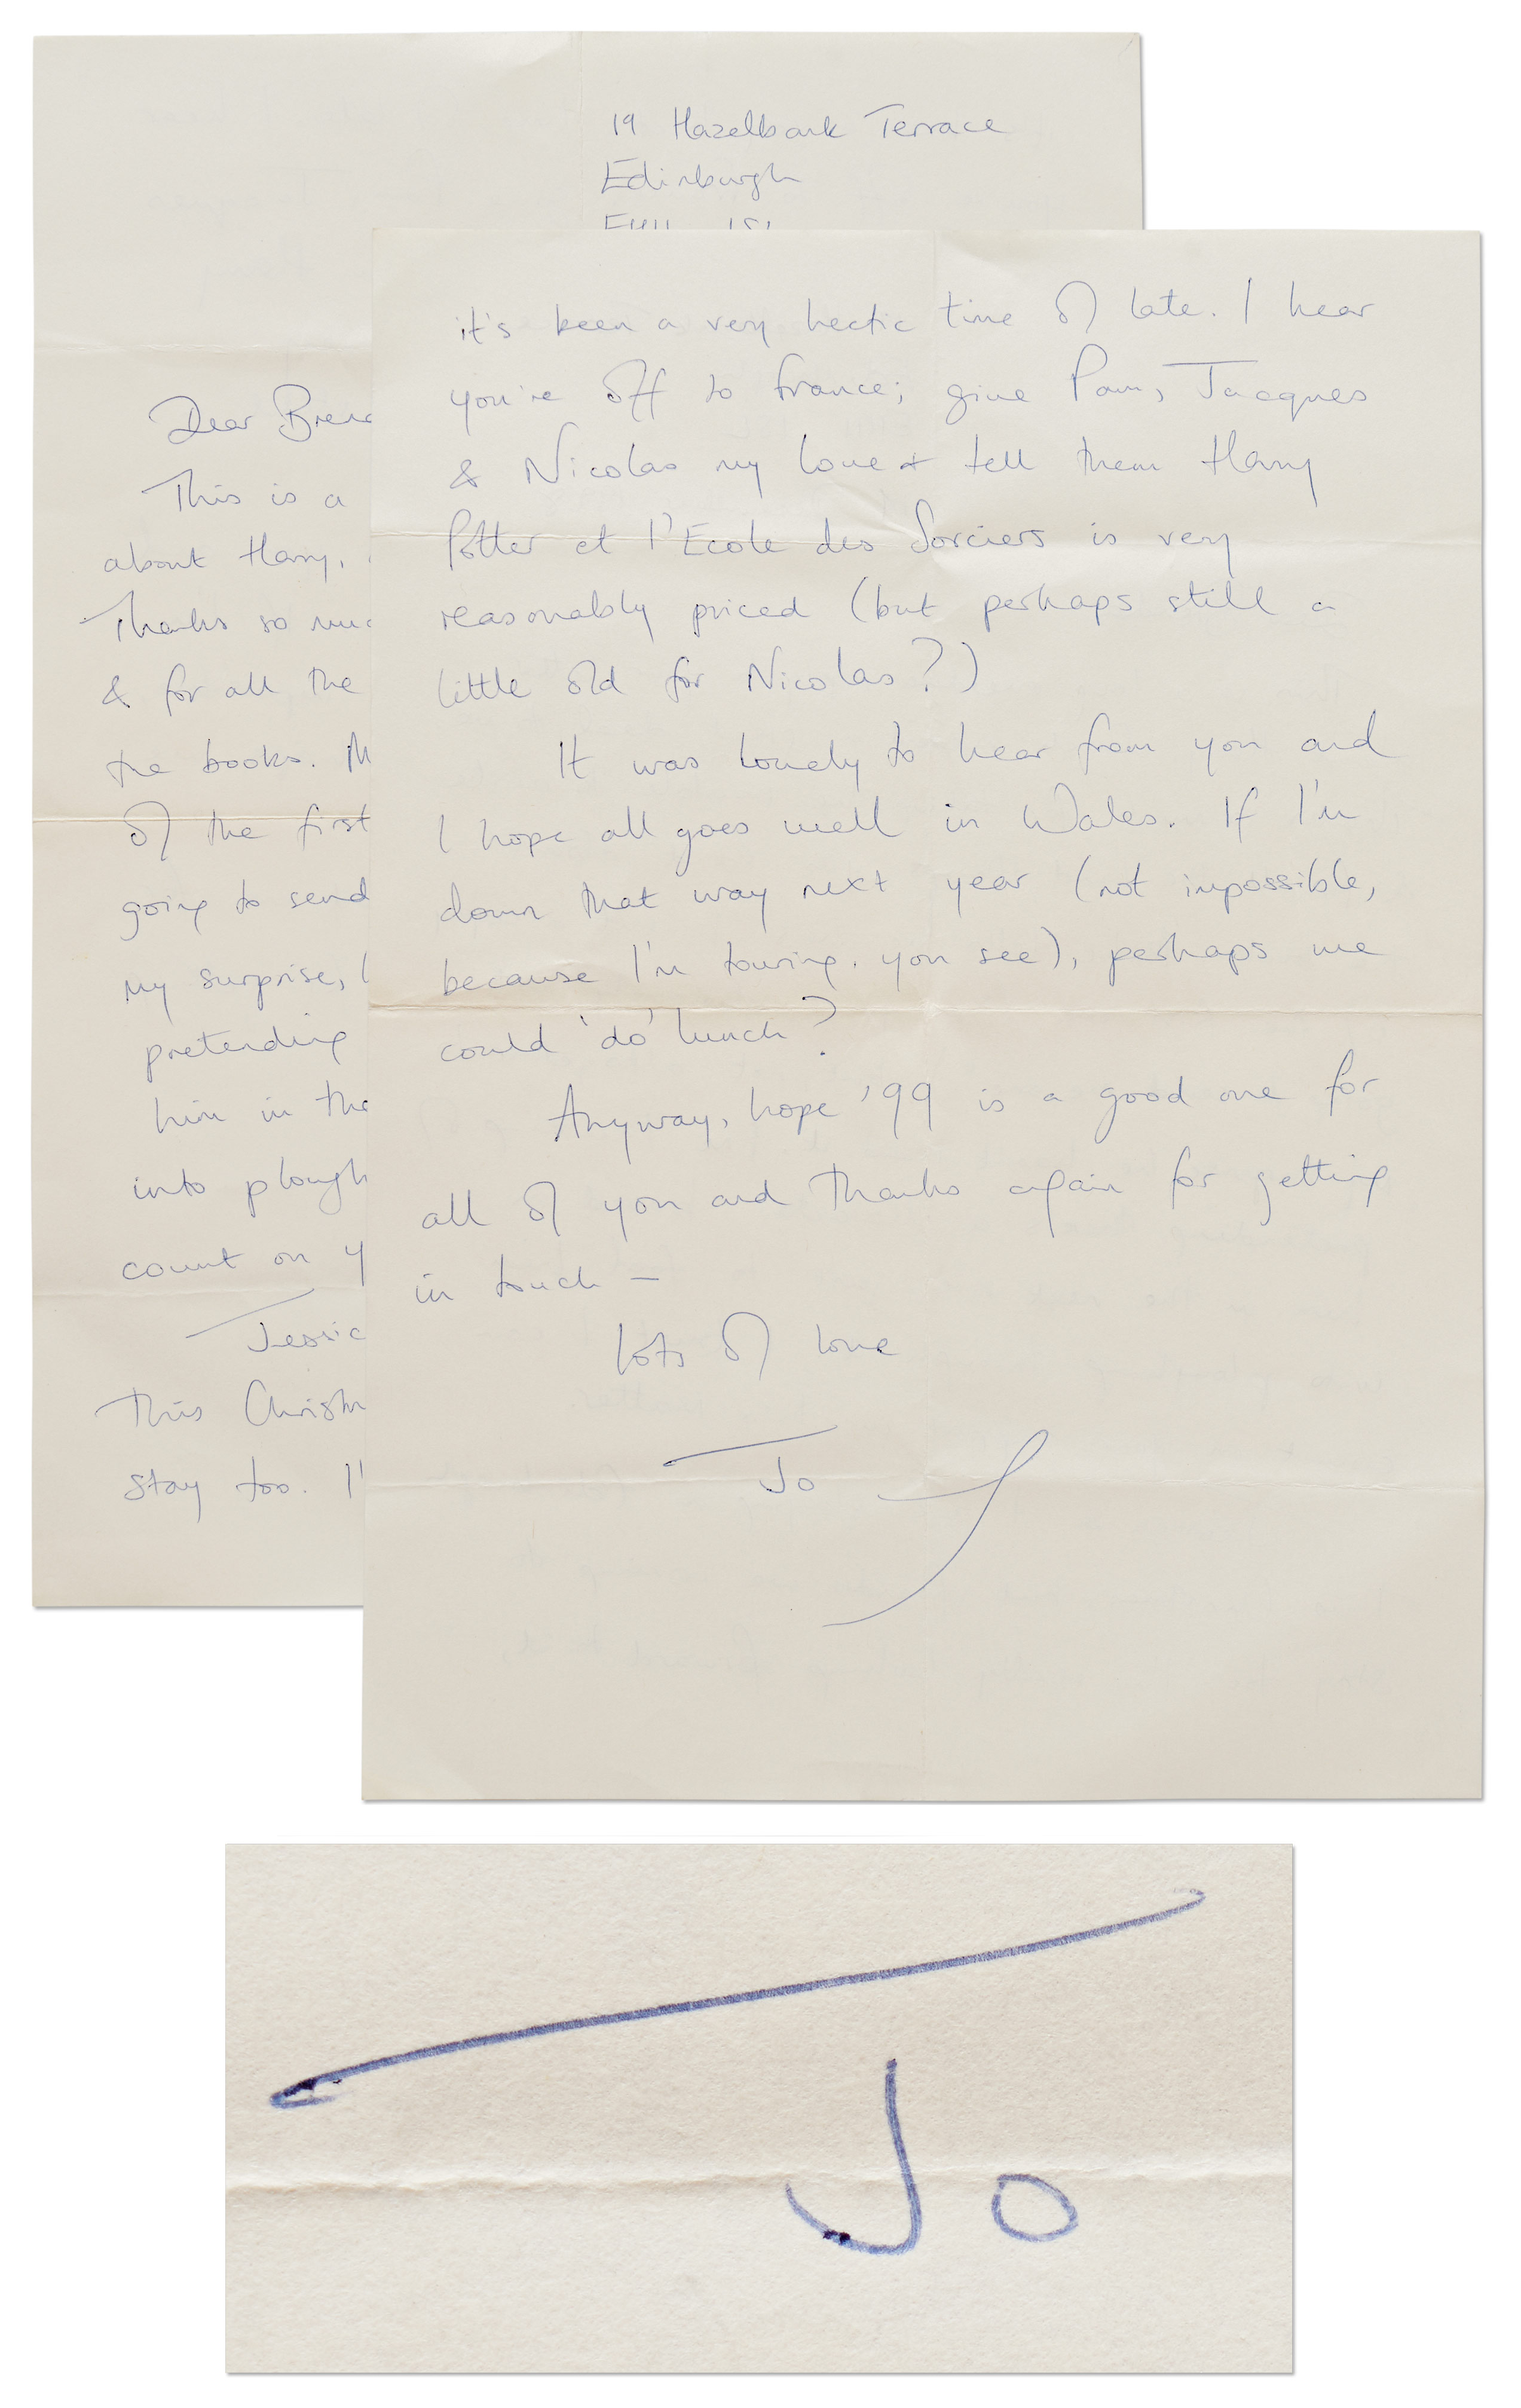 19 Hazelbank Terrace
Edinburgh
Dear
This is a
about Harry,
Thanks so
& for all the
the books.
of the first
going to send
my surprise,
pretending
him in the
into
count on
This
stay too.
it's been a very hectic time of late. I hear
you're off to France; give Pam, Jacques
& Nicolas my love & tell them Harry
Potter et l'Ecole des Sorciers is very
reasonably priced (but perhaps still a
little old for Nicolas?)
It was lovely to hear from you and
I hope all goes well in Wales. If I'm
down that way next year (not impossible,
because I'm touring, you see), perhaps we
could 'do' lunch?
Anyway, hope '99 is a good one for
all of you and thanks again for getting
in touch –
Lots of love
Jo
Jo